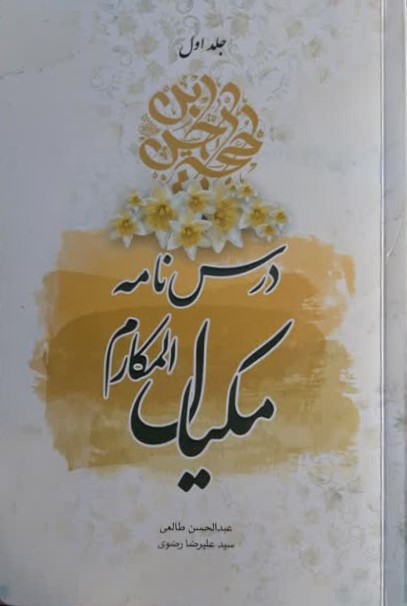 جلد اول
درس نامه
مکیال المکارم
عبدالحسن طالعی
سید علیرضا رضوی